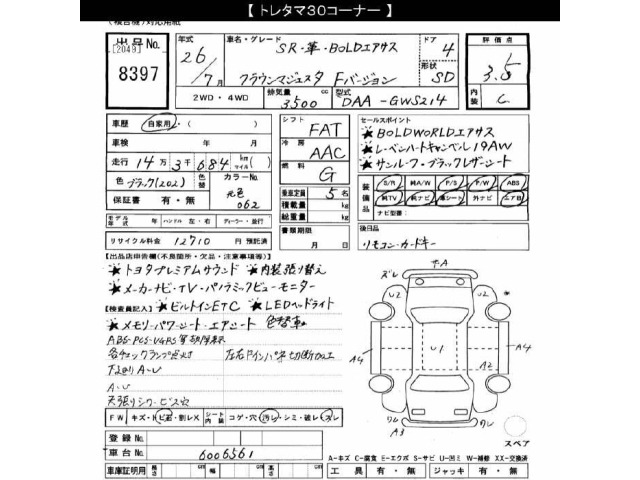 【 トレタマ30コーナー 】
(複合機)対応用紙
出品号No. 年式 車名・グレード ドア 評価点
[2049] SR・革・BOLDエアサス 4
8397 26/7月 クラウンマジェスタ Fバージョン 形状 SD 3.5
2WD・4WD 排気量 3500 cc 型式 DAA-GWS214 内装 C
車歴 自家用・( ) シフト FAT セールスポイント
車検 年 月 冷房 AAC ★BOLDWORLDエアサス
走行 14万3千684 km マイル ( ) 燃料 G ★レーベンハートキャンベル19AW
色 ブラック(202) 色替 カラーNo. 元色 062 ★サンルーフ・ブラックレザーシート
保証書 有・無 乗車定員 5名 装備品 S/R M/A/W P/S P/W ABS
積載量 kg 純TV 純ナビ 革シート 外ナビ エア B
総重量 kg ナビ型番
モデル年式 年 ハンドル 左・右 ディーラー・並行 書類期限 後日品
リサイクル料金 12710 円 預託済 月 日 リモコン・カードキー
【出品店申告欄(不良箇所・欠品・注意事項等)】
★トヨタプレミアムサウンド ★内装張り替え
★メーカーナビ・TV・パノラミックビューモニター
【検査員記入】 ★ビルトインETC ★LEDヘッドライト
★メモリーパワーシート・エアシート 色替車
各チェックランプ点灯
下廻りA-U
A-U
天張りシワ・ビス穴
FW キズ・トビ石・割レX シート内装 コゲ・穴・汚レ・シミ・破レ・スレ
登録No.
車台No. 6006561
車庫証明用 長さ cm 幅 cm 高さ cm
スレ 千A
U2 U2
A4 U1 A4
A2
ワレ A3 ワレ
スペア
A-キズ C-腐食 E-エクボ S-サビ U-凹ミ W-補修 XX-交換済
工具 有・無 ジャッキ 有・無